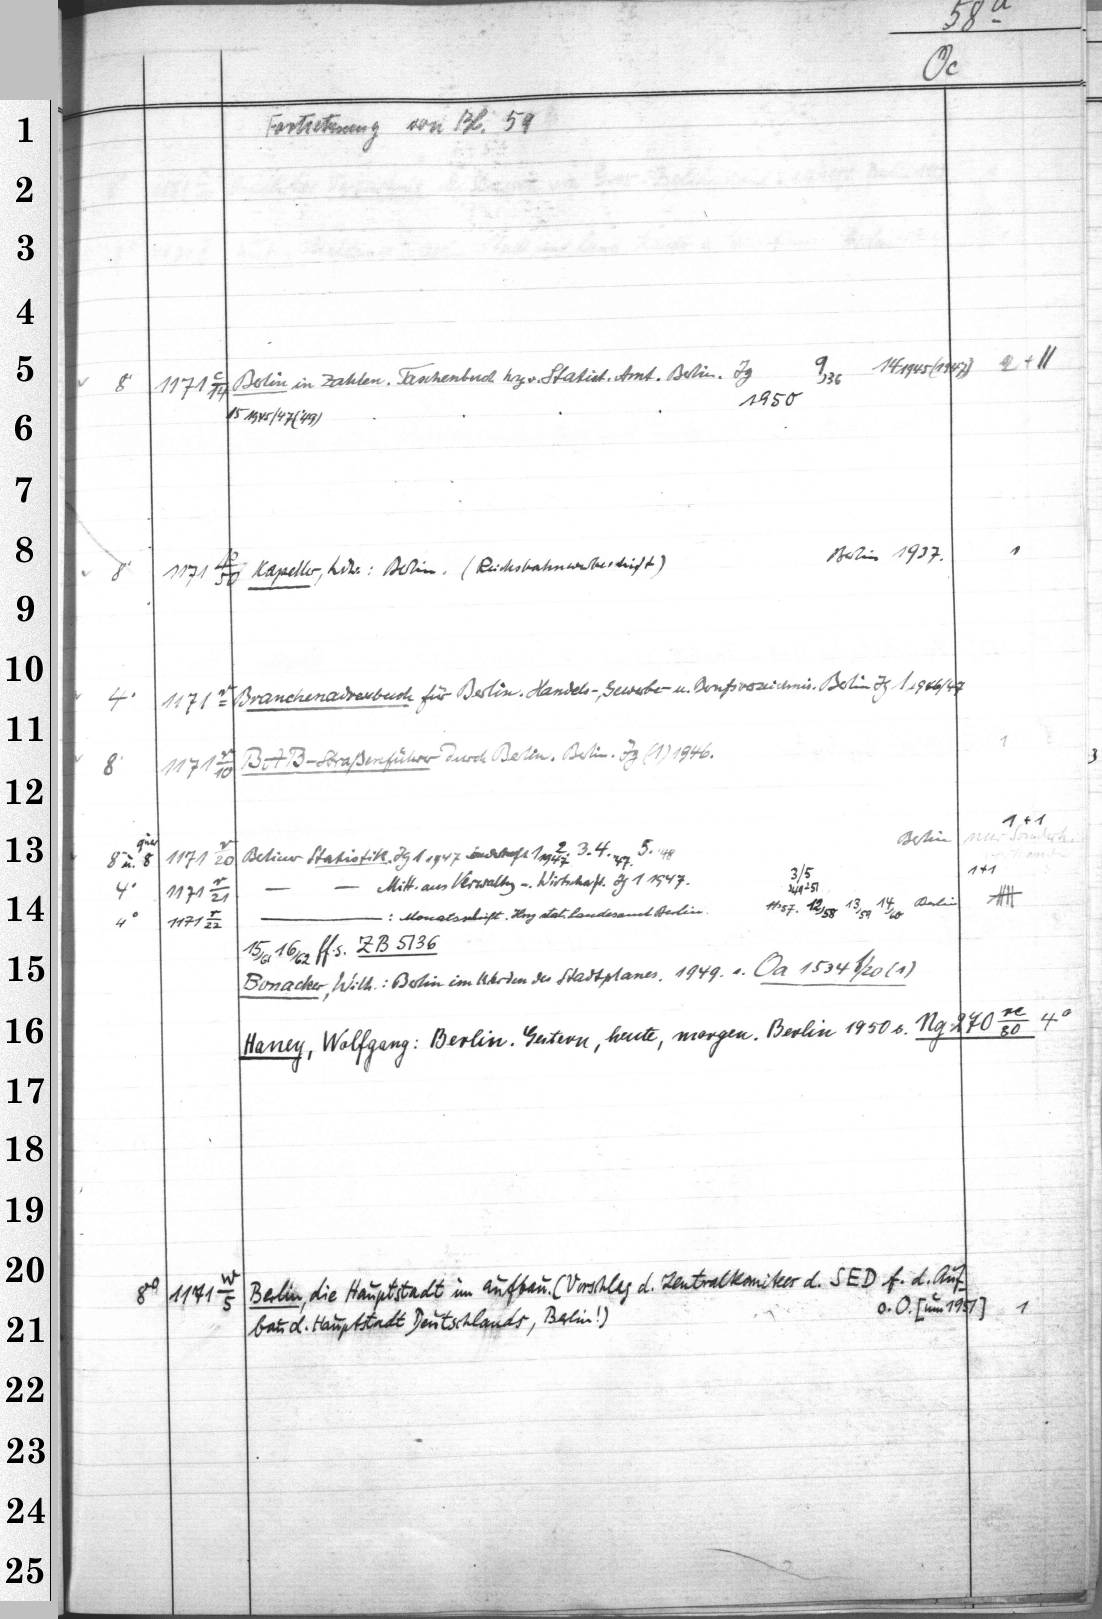 58a
Oc
1
Fortsetzung von Bl. 59
2
3
4
5
8° 1171 c/14 Berlin in Zahlen. Taschenbuch hrg. v. Statist. Amt. Berlin. Jg 9,36 14,1945(1947) 2 + II
1950
6
15 1945/47(49)
7
8
8° 1171 50 Kapeller, Ldw.: Berlin. (Reichsbahnwerbeschrift) Berlin 1937. 1
9
10
4° 1171 v Branchenadressbuch für Berlin. Handels-, Gewerbe- u. Berufsverzeichnis. Berlin Jg 1,1946/47
11
8° 1171 v/10 BAB-Straßenführer durch Berlin. Berlin. Jg (1) 1946. 1
12
1+1
13
8° u. quer 8° 1171 v/20 Berliner Statistik. Jg 1 1947 Sonderheft 1, 2. 3. 4. '47. 5. '48 Berlin
4° 1171 v/21 — — Mitt. aus Verwaltg u. Wirtschaft. Jg 1 1947. 3/5 1+1
14
4° 1171 v/22 ——— : Monatsschrift. Hrg. stat. Landesamt Berlin. 11/57. 12/58 13/59 14/60 Berlin
15/61 16/62 ff. s. ZB 5136
15
Bonacker, Wilh.: Berlin im Werden des Stadtplanes. 1949. s. Oa 1534 f/20(1)
16
Haney, Wolfgang: Berlin. Gestern, heute, morgen. Berlin 1950 s. Ng 270 re/80 4°
17
18
19
20
8° 1171 w/5 Berlin, die Hauptstadt im Aufbau. (Vorschlag d. Zentralkomitees d. SED f. d. Auf-
o. O. [um 1951] 1
21
bau d. Hauptstadt Deutschlands, Berlin!)
22
23
24
25